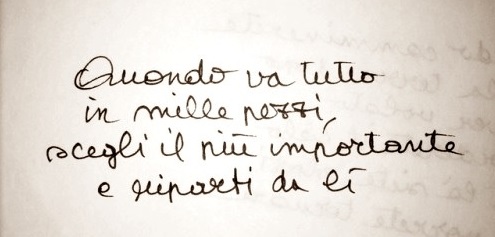 Quando va tutto
in mille pezzi,
scegli il più importante
e riparti da lì